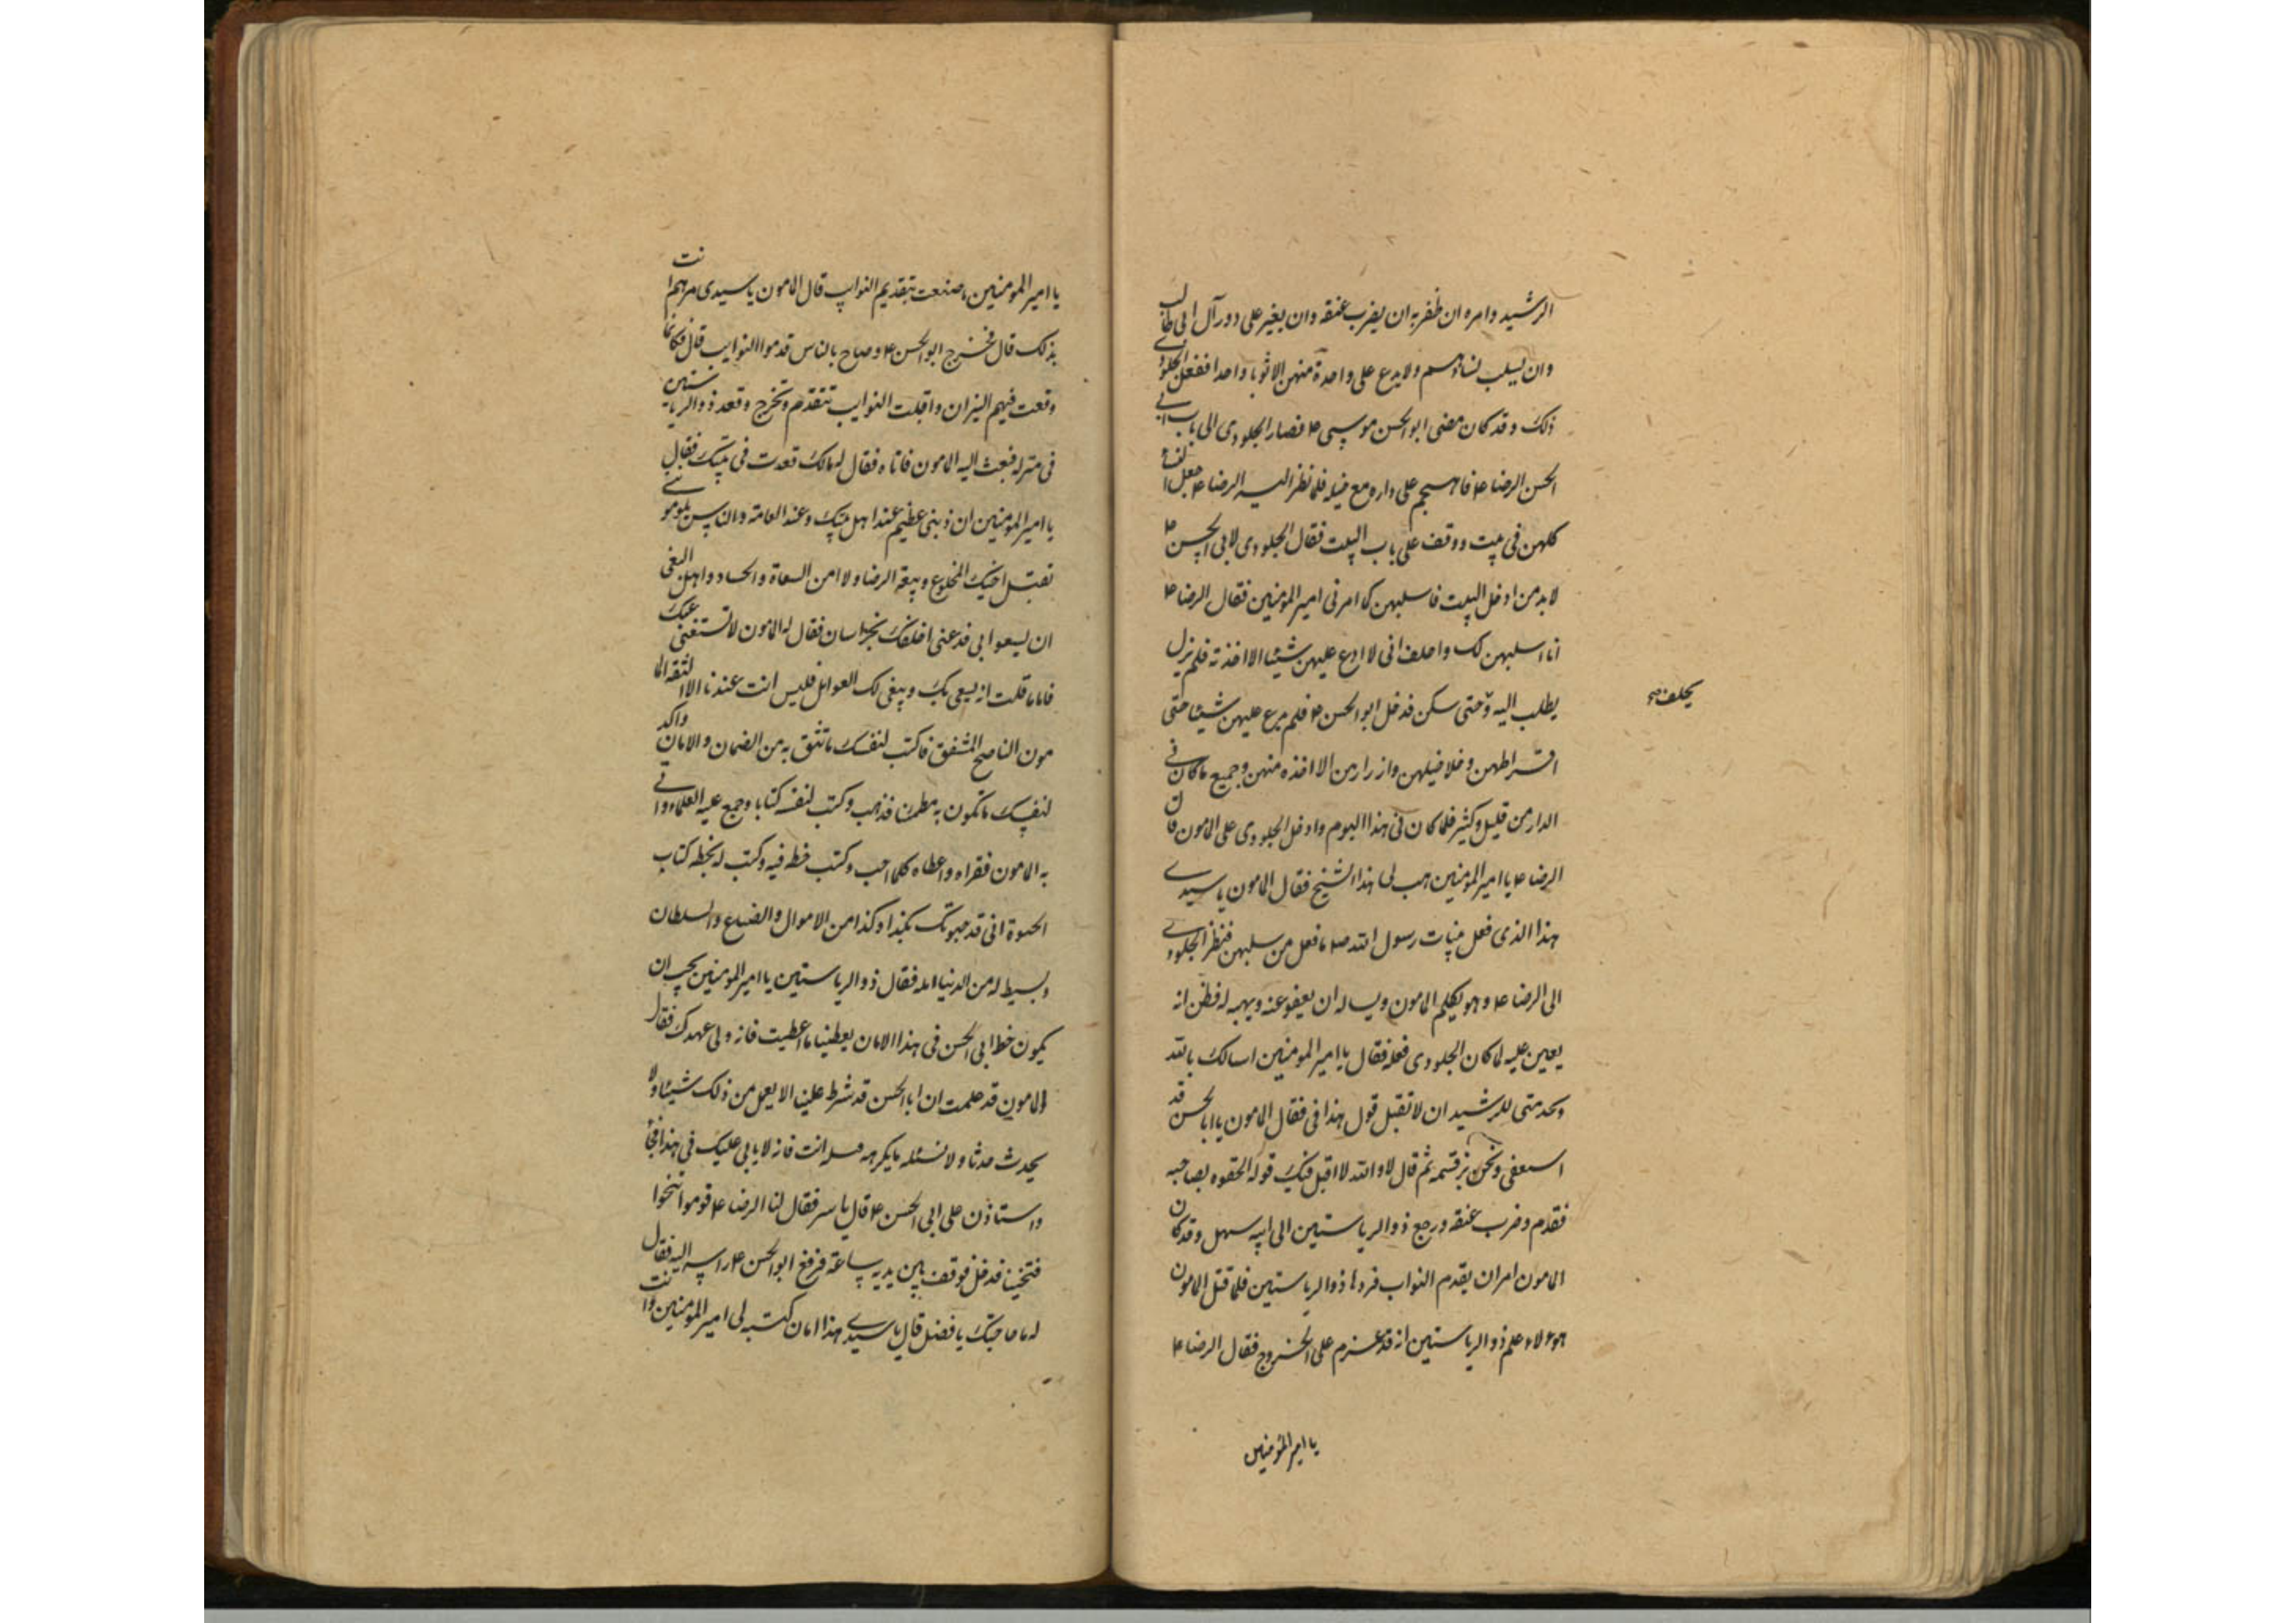 الرشيد وامره ان ظفر به ان يضرب عنقه وان يغير على دور آل ابى طالب
وان يسلب نساؤهم ولا يدع على واحدة منهن الا ثوبا واحدا ففعل الجلودي
ذلك وقد كان مضى ابو الحسن موسى ع فصار الجلودى الى باب ابي
الحسن الرضا ع فانهجم على داره مع خيله فلما نظر اليه الرضا ع جعل النساء
كلهن فى بيت ووقف على باب البيت فقال الجلودى لابى الحسن ع
لا بد من ادخل البيت فاسلبهن كما امرنى امير المؤمنين فقال الرضا ع
انا اسلبهن لك واحلف انى لا ادع عليهن شيئا الا اخذته فلم يزل
يطلب اليه و حتى سكن فدخل ابو الحسن ع فلم يدع عليهن شيئا حتى
يحلف صح
اقراطهن وخلاخيلهن وازرارهن الا اخذه منهن وجميع ما كان في
الدار من قليل وكثير فلما كان فى هذا اليوم وادخل الجلودى على المامون قال
الرضا ع يا امير المؤمنين هب لى هذا الشيخ فقال المامون يا سيدي
هذا الذى فعل ببنات رسول الله ص ما فعل من سلبهن فنظر الجلودي
الى الرضا ع وهو يكلم المامون ويساله ان يعفو عنه ويهبه له فظن انه
يعين عليه لما كان الجلودى فعله فقال يا امير المومنين اسالك بالله
وبخدمتى للرشيد ان لا تقبل قول هذا فى فقال المامون يا ابا الحسن قد
استعفى ونحن نبر قسمه ثم قال لا والله لا اقبل فيك قوله الحقوه بصاحبه
فقدم وضرب عنقه ورجع ذو الرياستين الى ابيه سهل وقد كان
المامون امر ان يقدم النواب فردها ذو الرياستين فلما قتل المامون
هولاء علم ذو الرياستين انه قد عزم على الخروج فقال الرضا ع
يا امير المؤمنين
يا امير المومنين ما صنعت بتقديم النوايب قال المامون يا سيدى مرهم انت
بذلك قال فخرج ابو الحسن ع وصاح بالناس قدموا النوايب قال فكانما
وقعت فيهم النيران واقبلت النوايب تتقدم وتخرج وقعد ذو الرياستين
فى منزله فبعث اليه المامون فاتاه فقال له مالك قعدت فى بيتك فقال
يا امير المؤمنين ان ذنبى عظيم عند اهل بيتك وعند العامة والناس يلومونني
بقتل اخيك المخلوع وبيعة الرضا ولا امن السعاة والحساد واهل البغي
ان يسعوا بى فدعنى اخلفك بخراسان فقال له المامون لا نستغنى عنك
فاما ما قلت انه يسعى بك ويبغى لك الغوايل فليس انت عندنا الا الثقة الما
مون الناصح المشفق فاكتب لنفسك ما تثق به من الضمان والامان واكد
لنفسك ما تكون به مطمئنا فذهب وكتب لنفسه كتابا وجمع عليه العلماء واتى
به المامون فقراه واعطاه كلما احب وكتب خطه فيه وكتب له بخطه كتاب
الحبوة انى قد حبوتك بكذا وكذا من الاموال والضياع والسلطان
وبسط له من الدنيا امله فقال ذو الرياستين يا امير المؤمنين يجب ان
يكون خط ابى الحسن فى هذا الامان يعطينا ما اعطيت فانه ولى عهدك فقال
المامون قد علمت ان ابا الحسن قد شرط علينا الا يعمل من ذلك شيئا ولا
يحدث حدثا ولا نسئله ما يكرهه فسله انت فانه لا يابى عليك فى هذا فجاء
واستاذن على ابى الحسن ع قال ياسر فقال لنا الرضا ع قوموا تنحوا
فتنحينا فدخل فوقف بين يديه ساعة فرفع ابو الحسن ع راسه اليه فقال
له ما حاجتك يا فضل قال يا سيدي هذا امان كتبه لى امير المؤمنين وانت